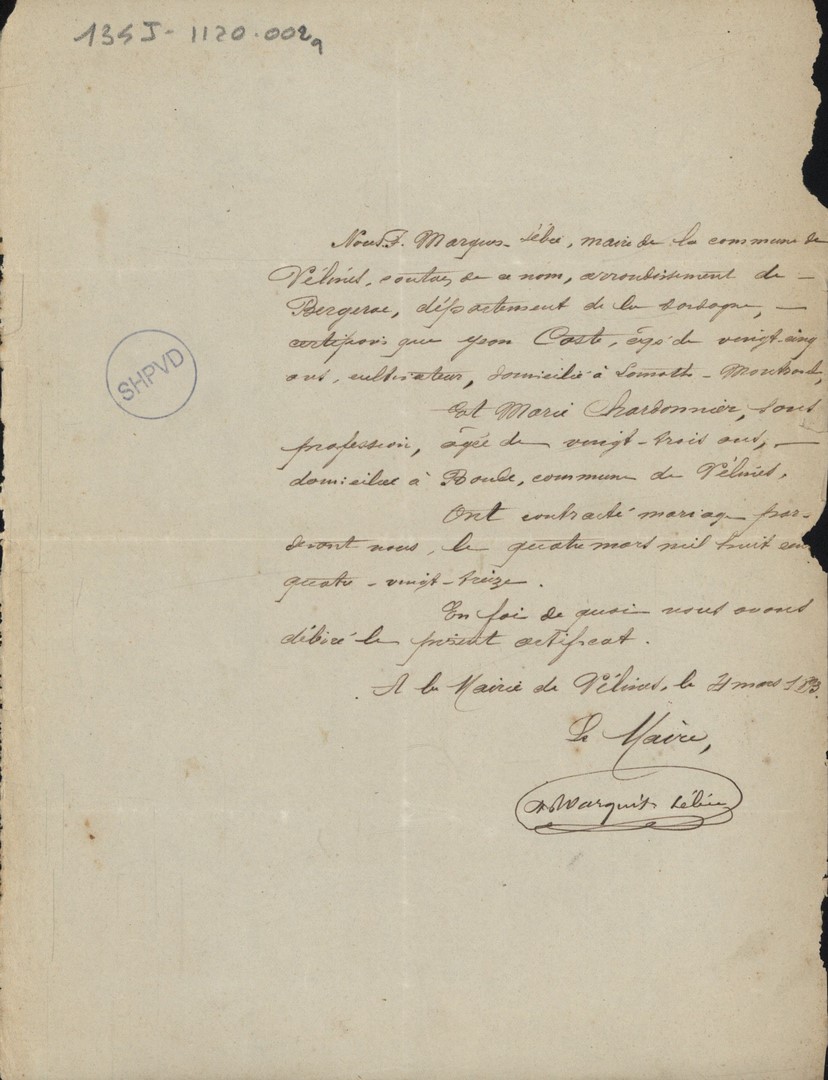 134J-1120.002a
Nous F. Marquis-Lébée, maire de la commune de
Vélines, canton de ce nom, arrondissement de
Bergerac, département de la Dordogne,
certifions que Coste, âgé de vingt-cinq
ans, cultivateur, domicilié à Lamothe-Montravel,
Et Marie Chardonnier, sans
profession, âgée de vingt-trois ans,
domiciliée à, commune de Vélines,
Ont contracté mariage par-
devant nous, le quatre mars mil huit cent
quatre-vingt-treize.
En foi de quoi nous avons
délivré le présent certificat.
A la Mairie de Vélines, le 4 mars
Le Maire,
Marquis
SHPVD